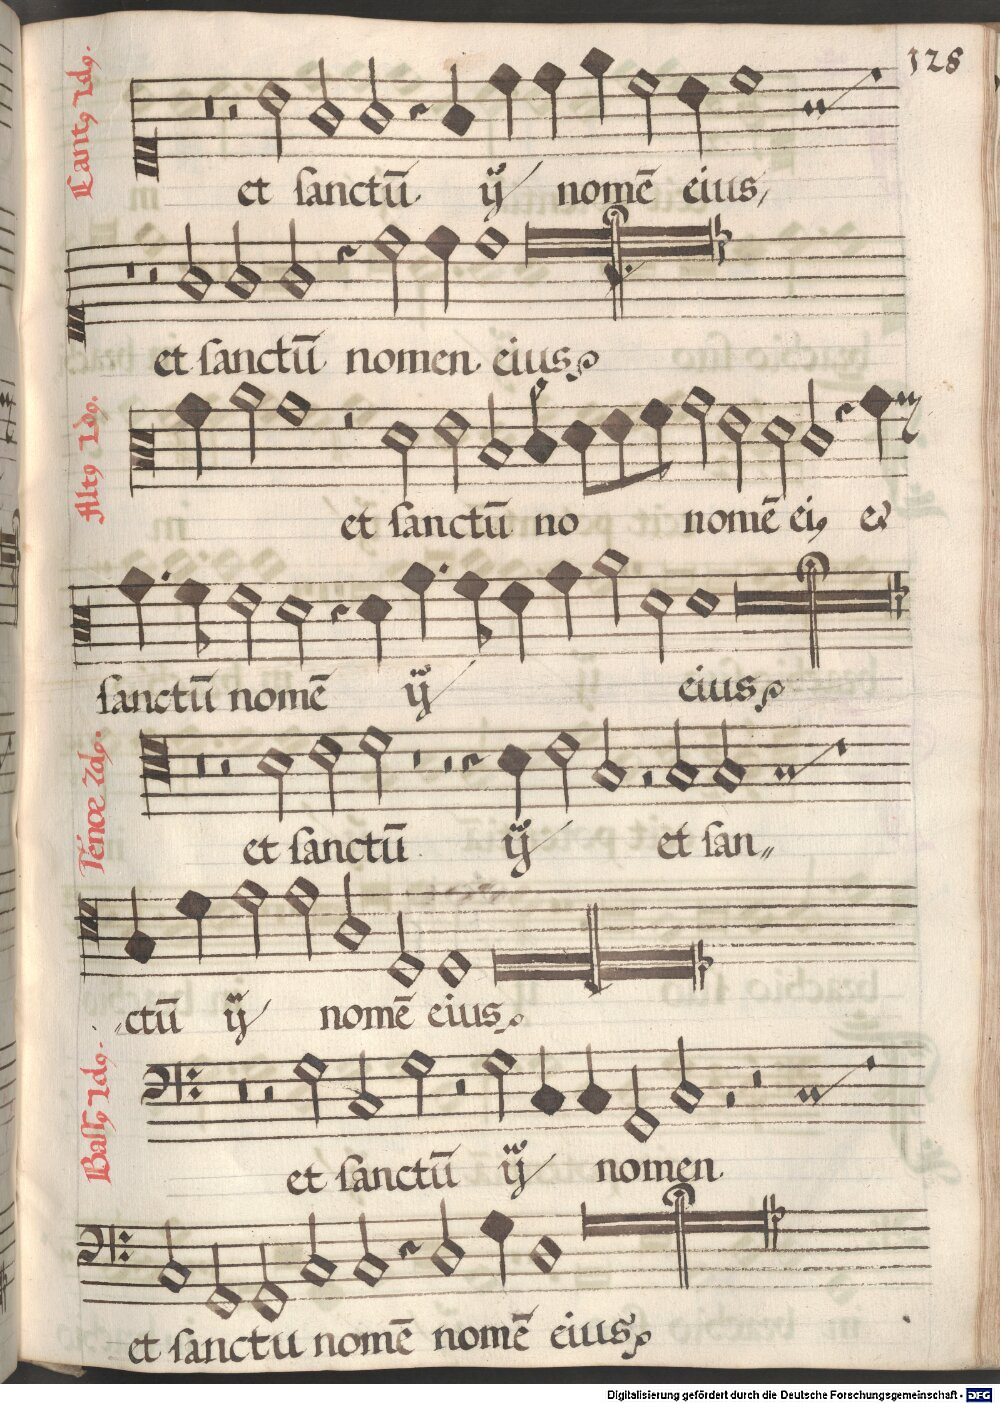 128
Cantꝰ 2dꝰ.
et sanctū ij nomē eius
et sanctū nomen eius
Altꝰ 2dꝰ.
et sanctū no nomē eiꝰ et
sanctū nomē ij eius
Tenor 2dꝰ.
et sanctū ij et san„
„ctū ij nomē eius
Bassꝰ 2dꝰ.
et sanctū ij nomen
et sanctu nomē nomē eius
Digitalisierung gefördert durch die Deutsche Forschungsgemeinschaft - DFG